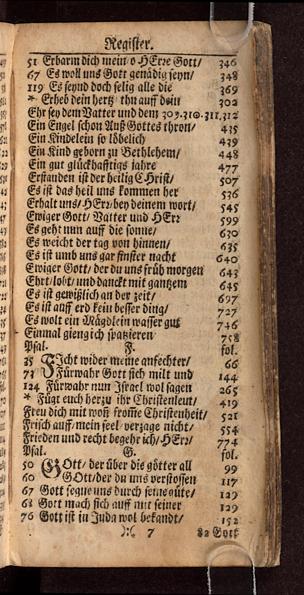 Register.
51 Erbarm dich mein o HErre Gott/ 346
67 Es woll uns Gott genädig seyn/ 348
119 Es seynd doch selig alle die 369
* Erheb dein hertz thu auff dein 302
Ehr sey dem Vatter und dem 309.310.311.312
Ein Engel schon Auß Gottes thron/ 435
Ein Kindelein so löbelich 439
Ein Kind geborn zu Bethlehem/ 448
Ein gut glückhafftigs jahre 477
Erstanden ist der heilig Christ/ 507
Es ist das heil uns kommen her 536
Erhalt uns/ HErr bey deinem wort/ 545
Ewiger Gott/ Vatter und HErr 599
Es geht nun auff die sonne/ 630
Es weicht der tag von hinnen/ 635
Es ist umb uns gar finster nacht 640
Ewiger Gott/ der du uns früh morgen 643
Ehrt/ lobt/ und danckt mit gantzem 645
Es ist gewißlich an der zeit/ 697
Es ist auff erd kein besser ding/ 727
Es wolt ein Mägdlein wasser gut 746
Einmal gieng ich spatzieren 758
Psal. F. fol.
35 FIcht wider meine anfechter/ 66
73 Fürwahr Gott sich milt und 144
124 Fürwahr nun Israel wol sagen 265
* Fügt euch herzu ihr Christenleut/ 419
Freu dich mit woñ fromme Christenheit/ 521
Frisch auff/ mein seel/ verzage nicht/ 554
Frieden und recht begehr ich/ HErr/ 774
Psal. G. fol.
50 GOtt/ der über die götter all 99
60 GOtt/ der du uns verstossen 117
67 Gott segne uns durch seine güte/ 129
68 Gott mach sich auff mit seiner 129
76 Gott ist in Juda wol bekandt/ 152
7 82 Gott